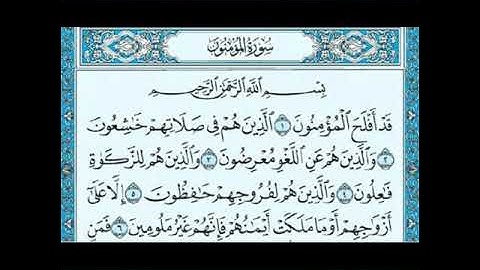 سورة المؤمنون
بِسْمِ اللَّهِ الرَّحْمَٰنِ الرَّحِيمِ
قَدْ أَفْلَحَ الْمُؤْمِنُونَ ١ الَّذِينَ هُمْ فِي صَلَاتِهِمْ خَٰشِعُونَ
٢ وَالَّذِينَ هُمْ عَنِ اللَّغْوِ مُعْرِضُونَ ٣ وَالَّذِينَ هُمْ لِلزَّكَوٰةِ
فَٰعِلُونَ ٤ وَالَّذِينَ هُمْ لِفُرُوجِهِمْ حَٰفِظُونَ ٥ إِلَّا عَلَىٰٓ
أَزْوَٰجِهِمْ أَوْ مَا مَلَكَتْ أَيْمَٰنُهُمْ فَإِنَّهُمْ غَيْرُ مَلُومِينَ ٦ فَمَنِ